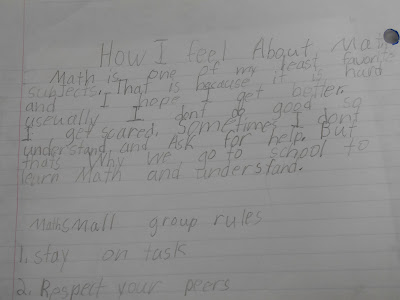 How I feel About Math
Math is one of my least favorite
subjects. That is because it is hard
and I hope I get better.
useually I dont do good so
I get scared. Sometimes I dont
understand and Ask for help. But
thats Why we go to school to
learn Math and understand.
Math small group rules
1. stay on task
2. Respect your peers